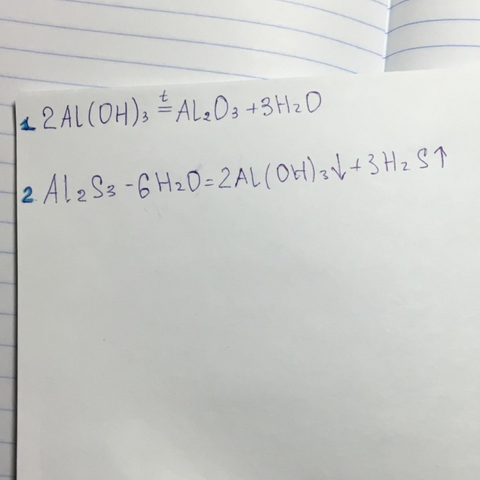 1 2Al(OH)₃ =ᵗ Al₂O₃ + 3H₂O
2 Al₂S₃ - 6H₂O = 2Al(OH)₃↓ + 3H₂S↑